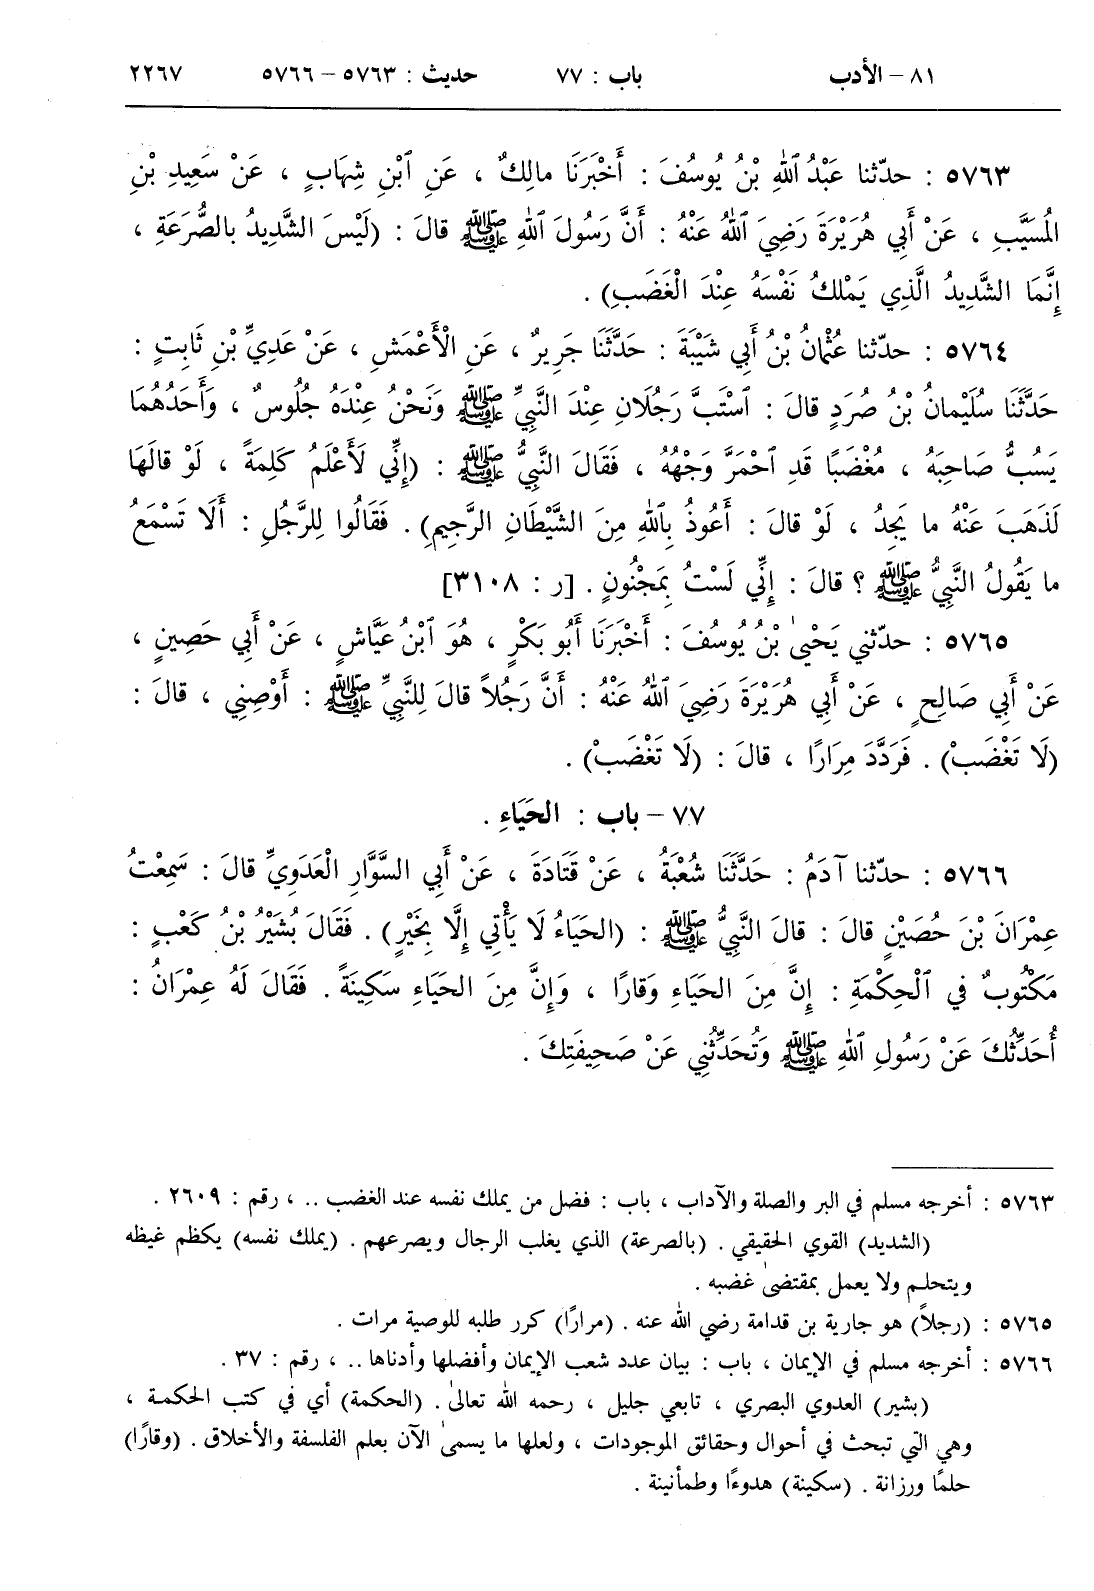 ٨١ – الأدب باب : ٧٧ حديث : ٥٧٦٣ – ٥٧٦٦ ٢٢٦٧
٥٧٦٣ : حدّثنا عَبْدُ ٱللهِ بْنُ يُوسُفَ : أَخْبَرَنَا مالِكٌ ، عَنِ ٱبْنِ شِهَابٍ ، عَنْ سَعِيدِ بْنِ
المُسَيَّبِ ، عَنْ أَبِي هُرَيْرَةَ رَضِيَ ٱللهُ عَنْهُ : أَنَّ رَسُولَ ٱللهِ ﷺ قالَ : (لَيْسَ الشَّدِيدُ بالصُّرَعَةِ ،
إِنَّمَا الشَّدِيدُ الَّذِي يَمْلكُ نَفْسَهُ عِنْدَ الْغَضَبِ) .
٥٧٦٤ : حدّثنا عُثْمانُ بْنُ أَبِي شَيْبَةَ : حَدَّثَنَا جَرِيرٌ ، عَنِ الْأَعْمَشِ ، عَنْ عَدِيِّ بْنِ ثَابِتٍ :
حَدَّثَنَا سُلَيْمانُ بْنُ صُرَدٍ قالَ : ٱسْتَبَّ رَجُلَانِ عِنْدَ النَّبِيِّ ﷺ وَنَحْنُ عِنْدَهُ جُلُوسٌ ، وَأَحَدُهُمَا
يَسُبُّ صَاحِبَهُ ، مُغْضَبًا قَدِ ٱحْمَرَّ وَجْهُهُ ، فَقَالَ النَّبِيُّ ﷺ : (إِنِّي لَأَعْلَمُ كَلِمَةً ، لَوْ قالَهَا
لَذَهَبَ عَنْهُ ما يَجِدُ ، لَوْ قالَ : أَعُوذُ بِٱللهِ مِنَ الشَّيْطَانِ الرَّجِيمِ) . فَقَالُوا لِلرَّجُلِ : أَلَا تَسْمَعُ
ما يَقُولُ النَّبِيُّ ﷺ ؟ قالَ : إِنِّي لَسْتُ بِمَجْنُونٍ . [ر : ٣١٠٨]
٥٧٦٥ : حدّثني يَحْيىٰ بْنُ يُوسُفَ : أَخْبَرَنَا أَبُو بَكْرٍ ، هُوَ ٱبْنُ عَيَّاشٍ ، عَنْ أَبِي حَصِينٍ ،
عَنْ أَبِي صَالِحٍ ، عَنْ أَبِي هُرَيْرَةَ رَضِيَ ٱللهُ عَنْهُ : أَنَّ رَجُلاً قالَ لِلنَّبِيِّ ﷺ : أَوْصِنِي ، قالَ :
(لَا تَغْضَبْ) . فَرَدَّدَ مِرَارًا ، قالَ : (لَا تَغْضَبْ) .
٧٧ – باب : الحَيَاءِ .
٥٧٦٦ : حدّثنا آدَمُ : حَدَّثَنَا شُعْبَةُ ، عَنْ قَتَادَةَ ، عَنْ أَبِي السَّوَّارِ الْعَدَوِيِّ قالَ : سَمِعْتُ
عِمْرَانَ بْنَ حُصَيْنٍ قالَ : قالَ النَّبِيُّ ﷺ : (الحَيَاءُ لَا يَأْتِي إِلَّا بِخَيْرٍ) . فَقَالَ بُشَيْرُ بْنُ كَعْبٍ :
مَكْتُوبٌ في ٱلْحِكْمَةِ : إِنَّ مِنَ الحَيَاءِ وَقارًا ، وَإِنَّ مِنَ الحَيَاءِ سَكِينَةً . فَقَالَ لَهُ عِمْرَانُ :
أُحَدِّثُكَ عَنْ رَسُولِ ٱللهِ ﷺ وَتُحَدِّثُنِي عَنْ صَحِيفَتِكَ .
٥٧٦٣ : أخرجه مسلم في البر والصلة والآداب ، باب : فضل من يملك نفسه عند الغضب .. ، رقم : ٢٦٠٩ .
(الشديد) القوي الحقيقي . (بالصرعة) الذي يغلب الرجال ويصرعهم . (يملك نفسه) يكظم غيظه
ويتحلم ولا يعمل بمقتضىٰ غضبه .
٥٧٦٥ : (رجلاً) هو جارية بن قدامة رضي الله عنه . (مرارًا) كرر طلبه للوصية مرات .
٥٧٦٦ : أخرجه مسلم في الإيمان ، باب : بيان عدد شعب الإيمان وأفضلها وأدناها .. ، رقم : ٣٧ .
(بشير) العدوي البصري ، تابعي جليل ، رحمه الله تعالىٰ . (الحكمة) أي في كتب الحكمة ،
وهي التي تبحث في أحوال وحقائق الموجودات ، ولعلها ما يسمىٰ الآن بعلم الفلسفة والأخلاق . (وقارًا)
حلمًا ورزانة . (سكينة) هدوءًا وطمأنينة .